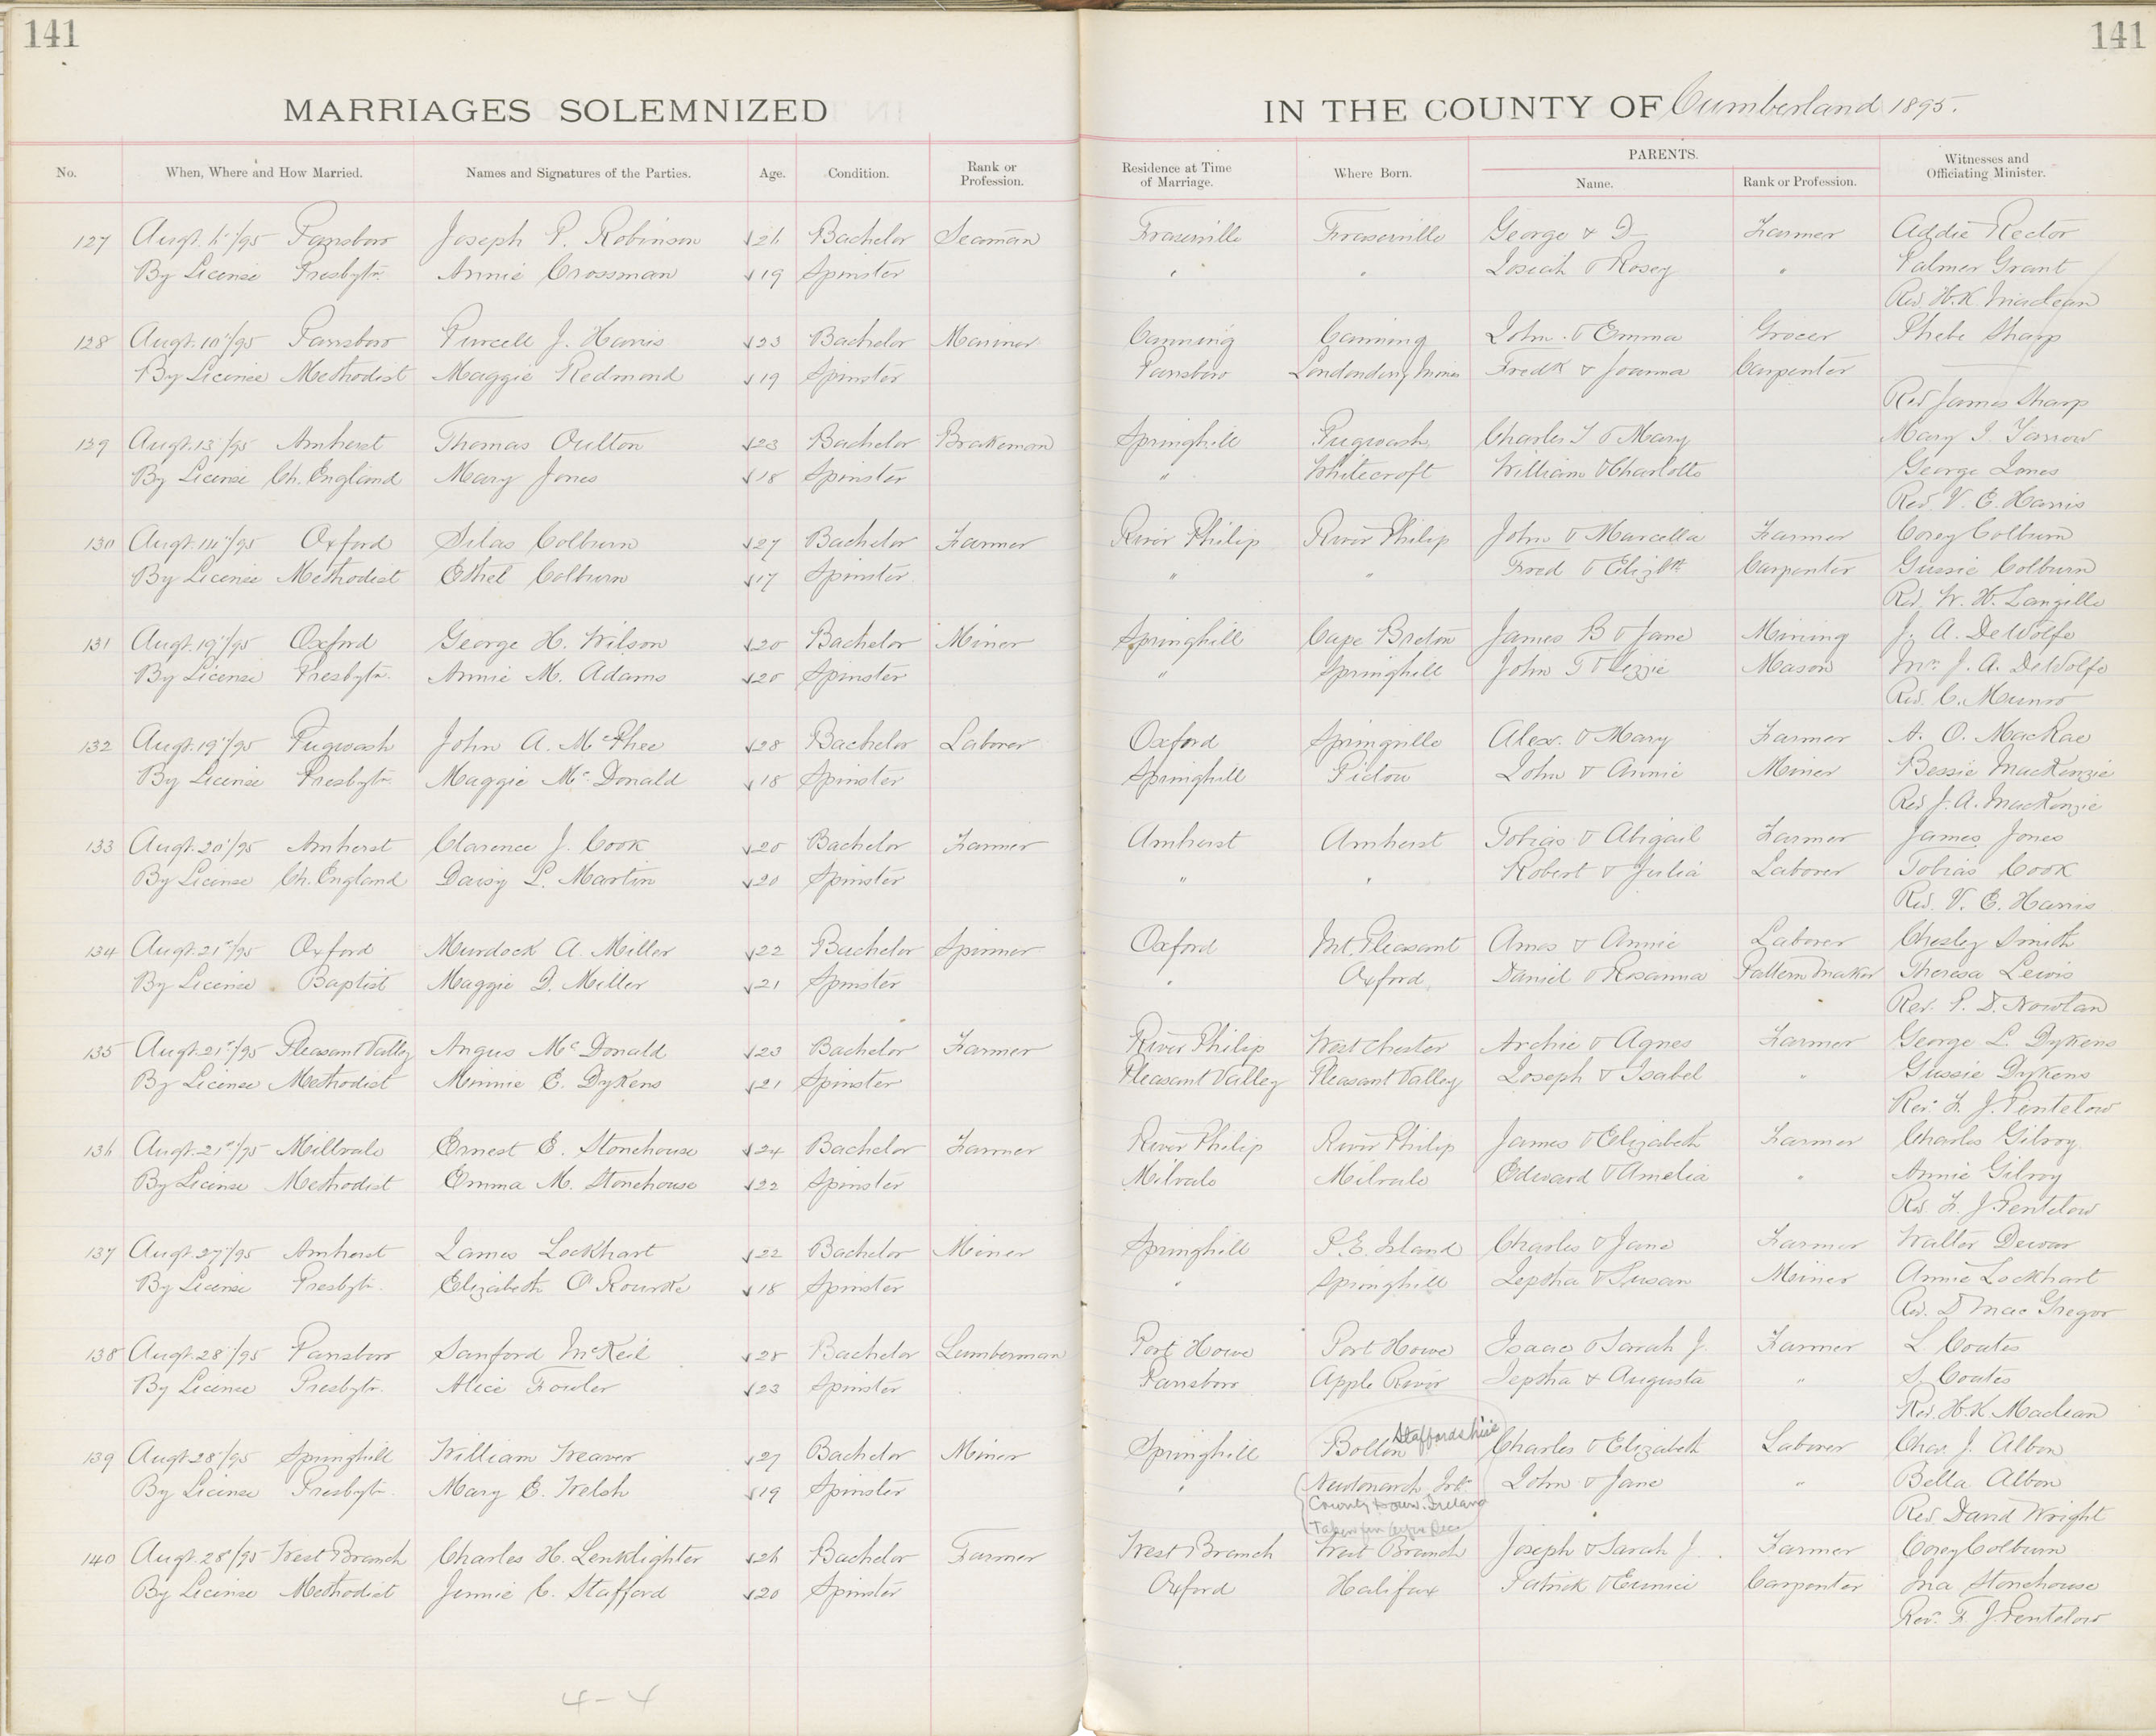 141
141
MARRIAGES SOLEMNIZED IN THE COUNTY OF Cumberland 1895.
No. When, Where and How Married. Names and Signatures of the Parties. Age. Condition. Rank or Profession. Residence at Time of Marriage. Where Born. PARENTS. Name. Rank or Profession. Witnesses and Officiating Minister.
127 Augt. 6"/95 Parrsboro Joseph P. Robinson 26 Bachelor Seaman Fraserville Fraserville George & D Farmer Addie Rector
By License Presbytn. Annie Crossman 19 Spinster " " Josiah & Rosey " Palmer Grant
Rev H.K. Maclean
128 Augt. 10"/95 Parrsboro Purcell J. Harris 23 Bachelor Mariner Canning Canning John & Emma Grocer Phebe Sharp
By License Methodist Maggie Redmond 19 Spinster Parrsboro Londonderry Mines Fredk & Joanna Carpenter
Rev James Sharp
129 Augt. 13"/95 Amherst Thomas Oulton 23 Bachelor Brakeman Springhill Pugwash Charles T & Mary Mary I. Farrow
By License Ch. England Mary Jones 18 Spinster " Whitecroft William & Charlotte George Jones
Rev. V. E. Harris
130 Augt. 14"/95 Oxford Silas Colburn 27 Bachelor Farmer River Philip River Philip John & Marcella Farmer Corey Colburn
By License Methodist Ethel Colburn 17 Spinster " " Fred & Elizbth Carpenter Gussie Colburn
Rev. W. H. Langille
131 Augt. 19"/95 Oxford George H. Wilson 20 Bachelor Miner Springhill Cape Breton James B & Jane Mining J. A. DeWolfe
By License Presbytn. Annie M. Adams 20 Spinster " Springhill John T & Lizzie Mason Mrs. J. A. DeWolfe
Rev. C. Munro
132 Augt. 19"/95 Pugwash John A. McPhee 28 Bachelor Laborer Oxford Springville Alex. & Mary Farmer A. O. MacRae
By License Presbytn. Maggie McDonald 18 Spinster Springhill Pictou John & Annie Miner Bessie MacKenzie
Rev J. A. MacKenzie
133 Augt. 20"/95 Amherst Clarence J. Cook 20 Bachelor Farmer Amherst Amherst Tobias & Abigail Farmer James Jones
By License Ch. England Daisy L. Martin 20 Spinster " " Robert & Julia Laborer Tobias Cook
Rev. V. E. Harris
134 Augt. 21"/95 Oxford Murdock A. Miller 22 Bachelor Spinner Oxford Mt. Pleasant Amos & Annie Laborer Chesley Smith
By License Baptist Maggie D. Miller 21 Spinster " Oxford Daniel & Rosanna Pattern Maker Theresa Lewis
Rev. P. D. Nowlan
135 Augt. 21"/95 Pleasant Valley Angus McDonald 23 Bachelor Farmer River Philip Westchester Archie & Agnes Farmer George L. Dykens
By License Methodist Minnie E. Dykens 21 Spinster Pleasant Valley Pleasant Valley Joseph & Isabel " Gussie Dykens
Rev. F. J. Pentelow
136 Augt. 21"/95 Millvale Ernest E. Stonehouse 24 Bachelor Farmer River Philip River Philip James & Elizabeth Farmer Charles Gilroy
By License Methodist Emma M. Stonehouse 22 Spinster Milvale Milvale Edward & Amelia " Annie Gilroy
Rev F. J. Pentelow
137 Augt. 27"/95 Amherst James Lockhart 22 Bachelor Miner Springhill P. E. Island Charles & Jane Farmer Walter Dewar
By License Presbytn. Elizabeth O'Rourke 18 Spinster " Springhill Jeptha & Susan Miner Annie Lockhart
Rev. D MacGregor
138 Augt. 28"/95 Parrsboro Sanford McKeil 28 Bachelor Lumberman Port Howe Port Howe Isaac & Sarah J. Farmer L Coates
By License Presbytn. Alice Fowler 23 Spinster Parrsboro Apple River Jeptha & Augusta " S. Coates
Rev. H. K. Maclean
139 Augt. 28"/95 Springhill William Weaver 27 Bachelor Miner Springhill Bollon Staffordshire Charles & Elizabeth Laborer Chas. J. Albon
By License Presbytn. Mary E. Welsh 19 Spinster " Newtonarch Irl. John & Jane " Bella Albon
County Down. Ireland
Taken from
Rev. David Wright
140 Augt. 28"/95 West Branch Charles H. Lenklighter 26 Bachelor Farmer West Branch West Branch Joseph & Sarah J. Farmer Corey Colburn
By License Methodist Jennie C. Stafford 20 Spinster Oxford Halifax Patrick & Eunice Carpenter Ina Stonehouse
Rev. F. J. Pentelow
4-4